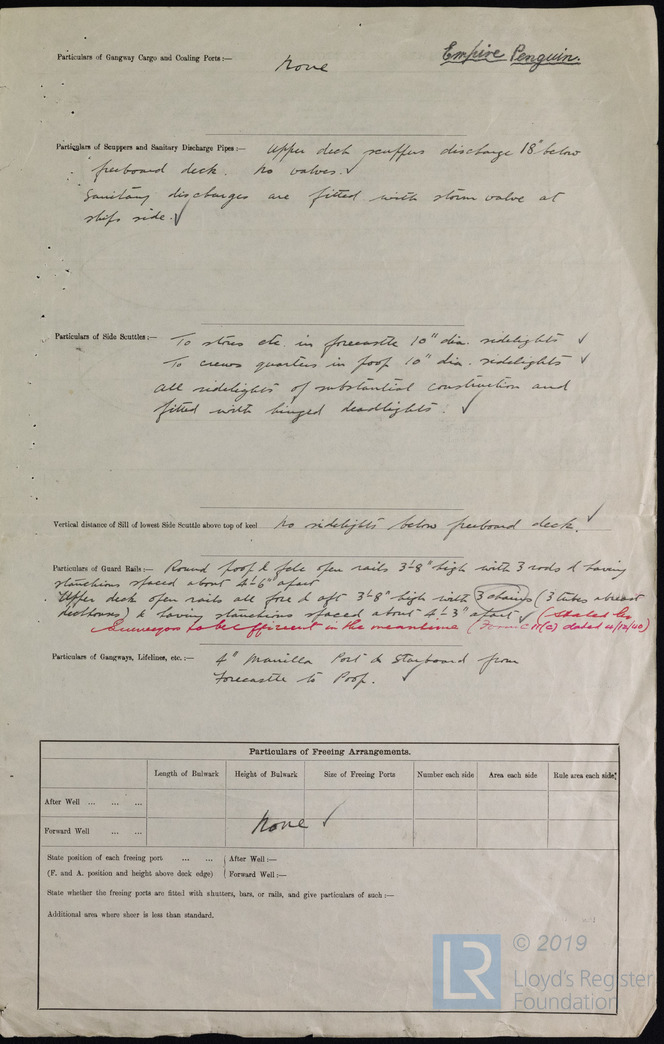 Empire Penguin.
Particulars of Gangway Cargo and Coaling Ports :— None
Particulars of Scuppers and Sanitary Discharge Pipes :— Upper deck scuppers discharge 18" below
freeboard deck. No valves. ✓
Sanitary discharges are fitted with storm valve at
ships side. ✓
Particulars of Side Scuttles :— To stores etc. in forecastle 10" dia. sidelights ✓
To crews quarters in poop 10" dia. sidelights ✓
All sidelights of substantial construction and
fitted with hinged deadlights. ✓
Vertical distance of Sill of lowest Side Scuttle above top of keel No sidelights below freeboard deck. ✓
Particulars of Guard Rails :— Round poop & fcle open rails 3'-8" high with 3 rods & having
stanchions spaced about 4'-6" apart
Upper deck open rails all fore & aft 3'-8" high with 3 chains (3 tubes abreast
deckhouses) & having stanchions spaced about 4'-3" apart ✓ (Stated by
Surveyors to be efficient in the meantime (Form C 11(c) dated 4/12/40)
Particulars of Gangways, Lifelines, etc. :— 4" Manilla Port & Starboard from
Forecastle to Poop. ✓
Particulars of Freeing Arrangements.
Length of Bulwark Height of Bulwark Size of Freeing Ports Number each side Area each side Rule area each side
After Well ... ... ...
Forward Well ... ... None ✓
State position of each freeing port ... ... After Well :—
(F. and A. position and height above deck edge) Forward Well :—
State whether the freeing ports are fitted with shutters, bars, or rails, and give particulars of such :—
Additional area where sheer is less than standard.
LR © 2019
Lloyd's Register
Foundation